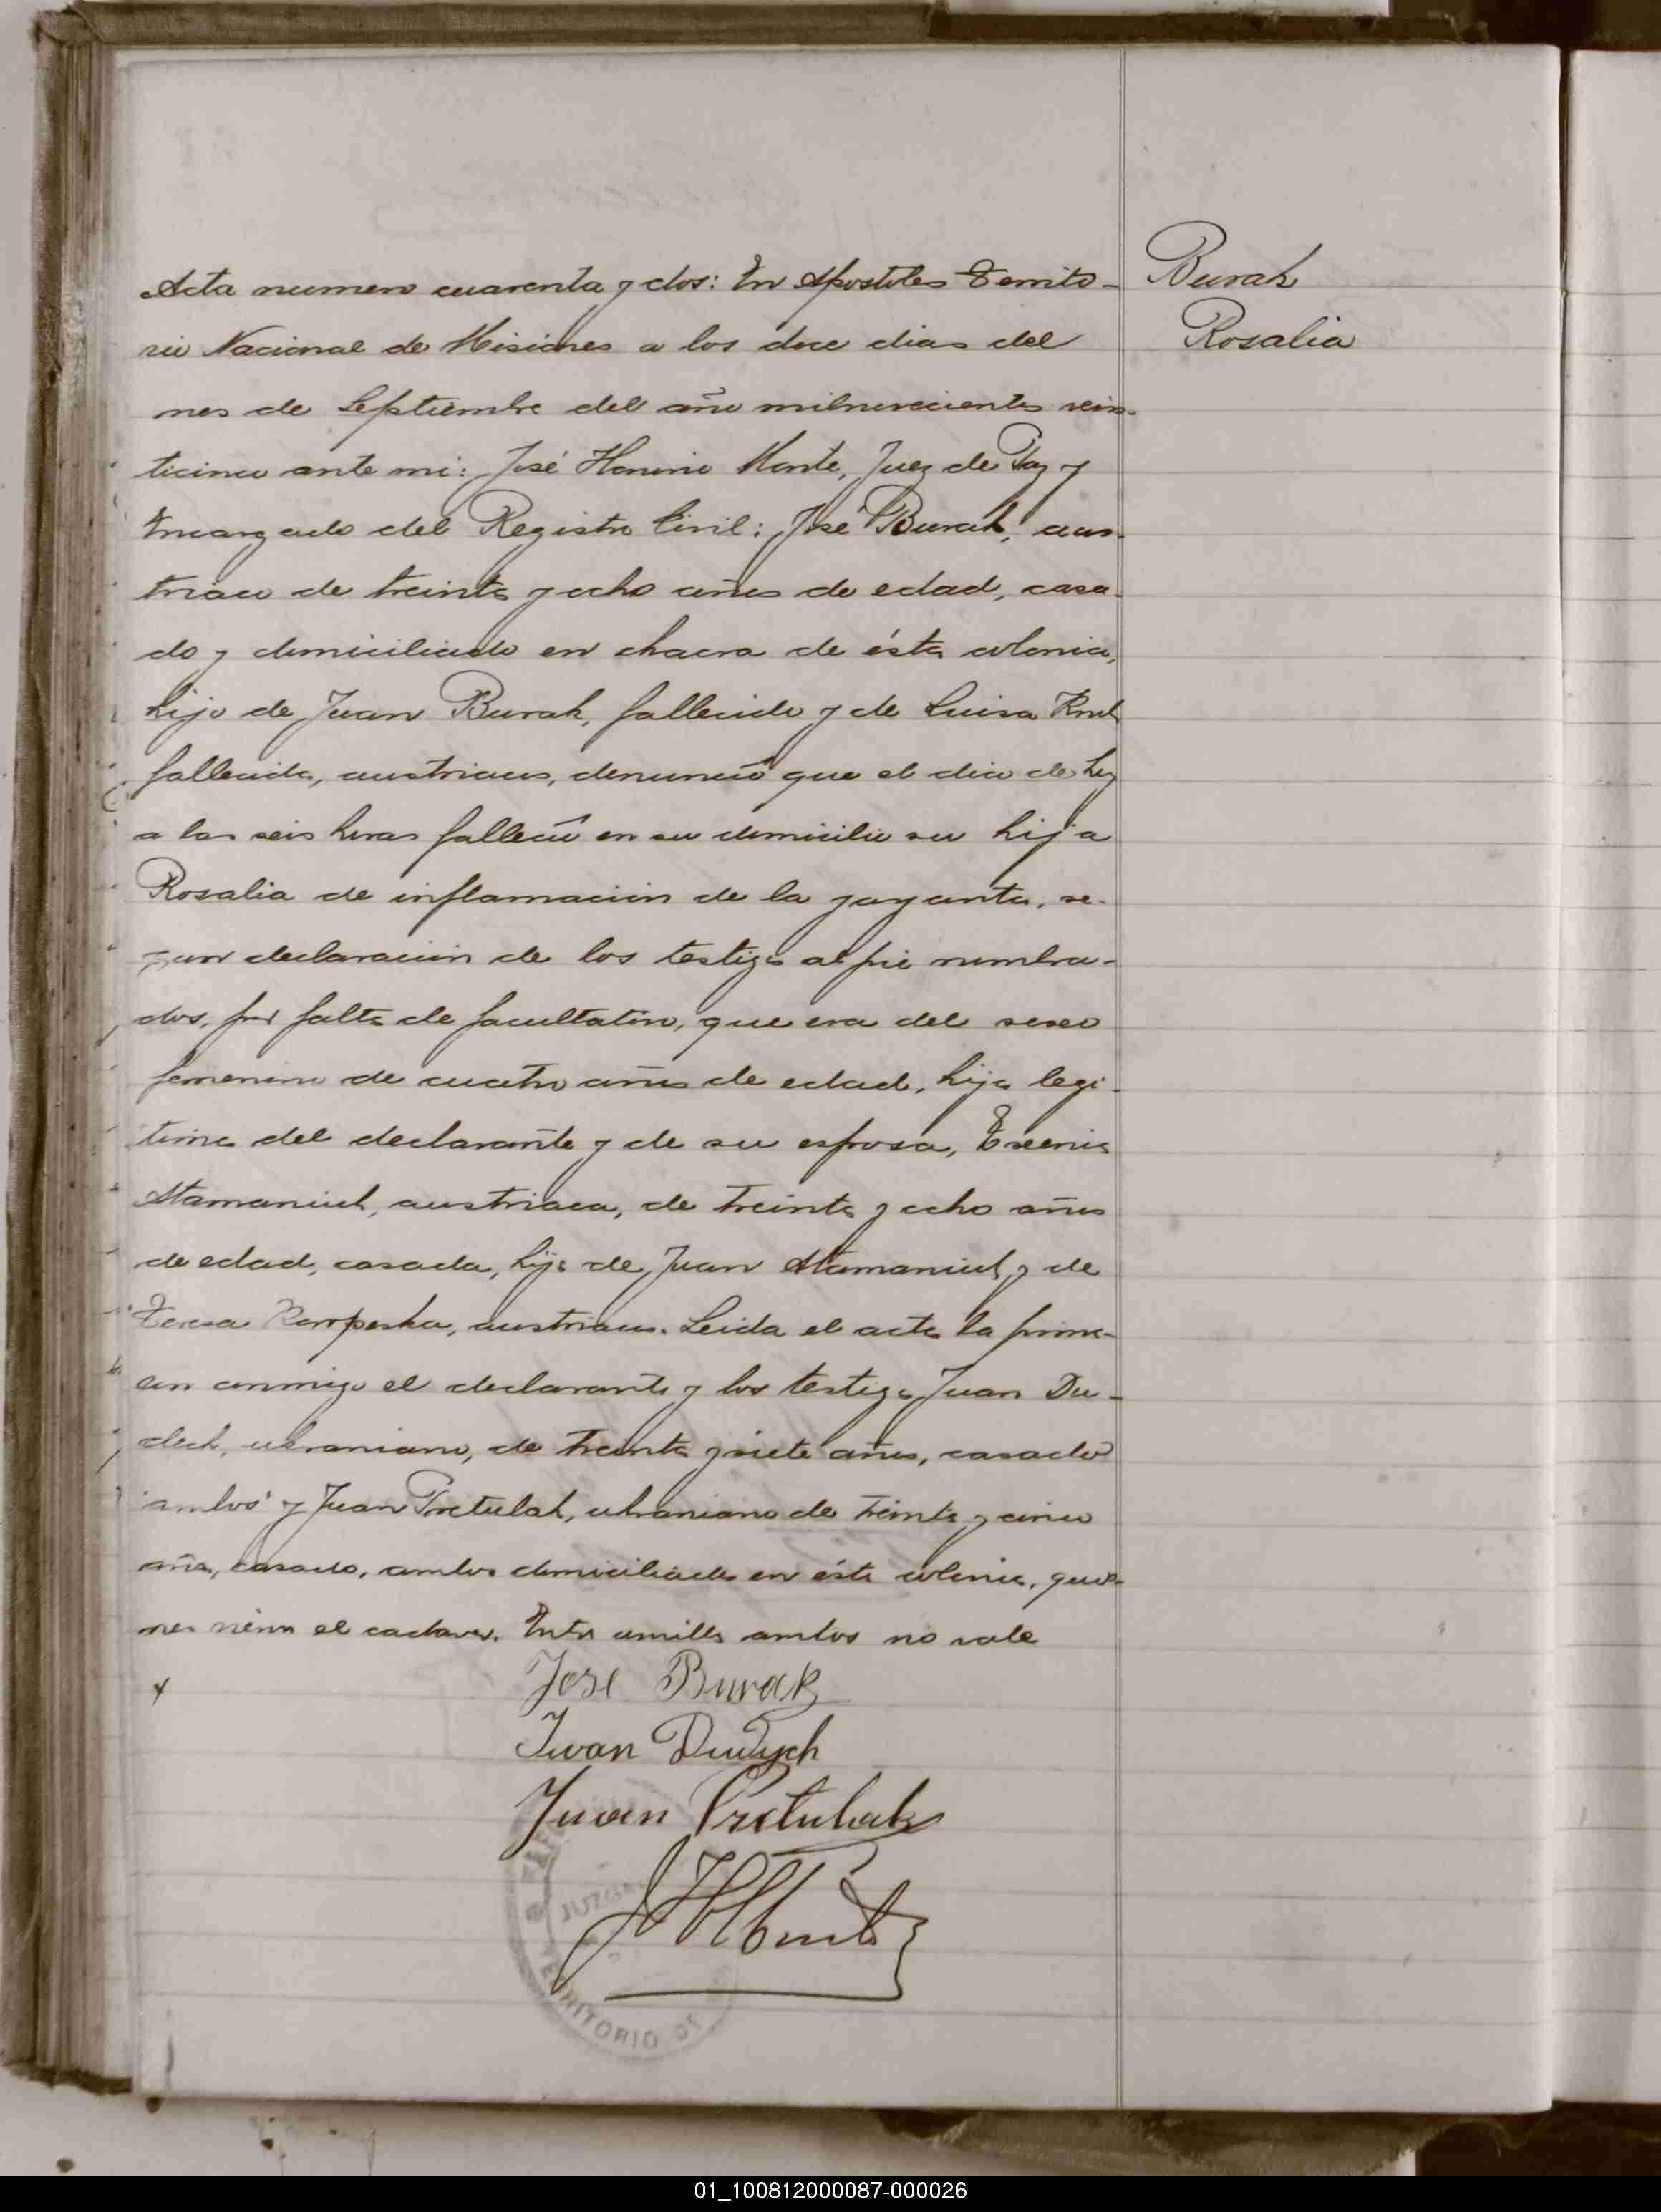 Acta numero cuarenta y dos: En Apostoles Territo-
rio Nacional de Misiones a los doce dias del
mes de Septiembre del año milnovecientos vein-
ticinco ante mi: José Honorio Monte, Juez de Paz y
Encargado del Registro Civil: José Burak, aus-
triaco de treinta y ocho años de edad, casa-
do y domiciliado en chacra de ésta colonia,
hijo de Juan Burak, fallecido y de Luisa
fallecida, austriacos, denunció que el dia de hoy
a las seis horas falleció en su domicilio su hija
Rosalia de inflamacion de la garganta, se-
gun declaracion de los testigos al pie nombra-
dos, por falta de facultativo, que era del sexo
femenino de cuatro años de edad, hija legi-
tima del declarante y de su esposa,
Atamaniuk, austriaca, de treinta y ocho años
de edad, casada, hija de Juan Atamaniuk y de
Teresa austriacos. Leida el acta la firma-
con conmigo el declarante y los testigos Juan Du-
dek, ukraniano, de treinta y siete años, casado
"ambos" y Juan Pretulak, ukraniano de treinta y cinco
años, casado, ambos domiciliados en ésta colonia, quie-
nes vieron el cadaver. Entre comillas ambos no vale
Jose Burak
Iwan Dudych
Juan Pretulak
JHMonte
JUZGA
TERRITORIO DE
Burak
Rosalia
01_100812000087-000026